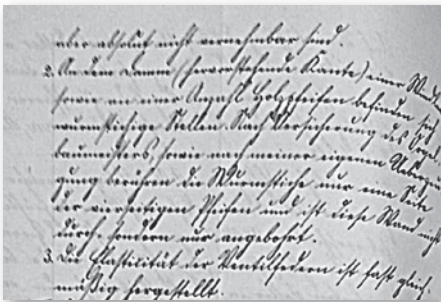 aber absolut nicht vernehmbar sind.
2. An dem Damm (hervorstehende Kante) einer Wind
sowie an einer Anzahl Holzpfeifen befinden sich
wurmstichige Stellen. Nach Versicherung des Orgel
baumeisters, sowie nach meiner eigenen Ueberzeu
gung berühren die Wurmstiche nur eine Seite
der vierseitigen Pfeifen und ist diese Wand nicht
durch, sondern nur angebohrt.
3. Die Elasticität der Ventilfedern ist fast gleich
mäßig hergestellt.